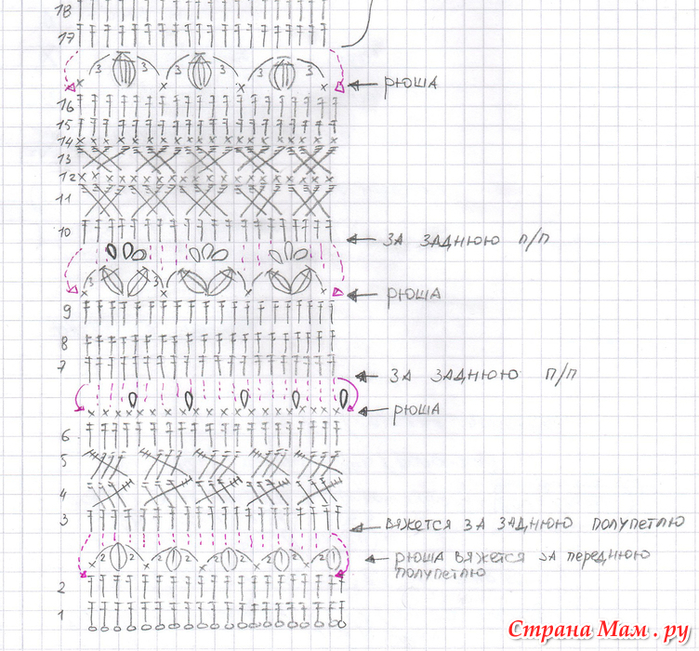 18
17
3 3 3 3
РЮША
16
15
14
13
12
11
10
ЗА ЗАДНЮЮ П/П
3 3
РЮША
9
8
7
ЗА ЗАДНЮЮ П/П
РЮША
6
5
4
3
ВЯЖЕТСЯ ЗА ЗАДНЮЮ ПОЛУПЕТЛЮ
2 2 2 2 2
РЮША ВЯЖЕТСЯ ЗА ПЕРЕДНЮЮ
ПОЛУПЕТЛЮ
2
1
Страна Мам.ру